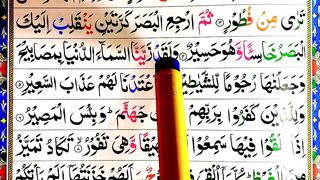 تَرٰى مِنْ فُطُوْرٍ ۝ ثُمَّ ارْجِعِ الْبَصَرَ كَرَّتَيْنِ يَنْقَلِبْ اِلَيْكَ
الْبَصَرُ خَاسِئًا وَّهُوَ حَسِيْرٌ ۝ وَلَقَدْ زَيَّنَّا السَّمَآءَ الدُّنْيَا بِمَصَابِيْحَ
وَجَعَلْنٰهَا رُجُوْمًا لِّلشَّيٰطِيْنِ اَعْتَدْنَا لَهُمْ عَذَابَ السَّعِيْرِ ۝
وَلِلَّذِيْنَ كَفَرُوْا بِرَبِّهِمْ جَهَنَّمَ ۭ وَبِئْسَ الْمَصِيْرُ ۝
اِذَآ اُلْقُوْا فِيْهَا سَمِعُوْا شَهِيْقًا وَّهِيَ تَفُوْرُ ۝ تَكَادُ تَمَيَّزُ
مِنَ الْغَيْظِ ۭ كُلَّمَآ اُلْقِيَ سَاَلَهُمْ خَزَنَتُهَآ اَلَمْ